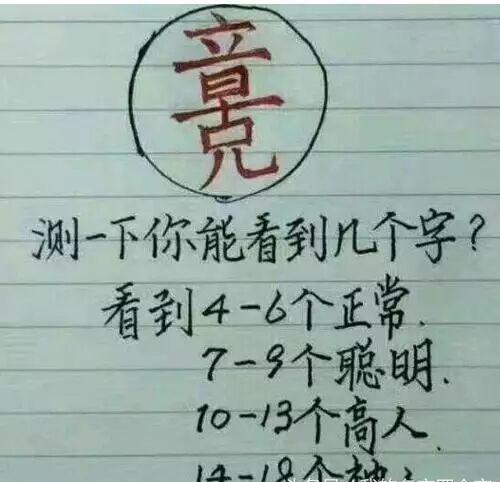 测一下你能看到几个字?
看到4-6个正常.
7-9个聪明.
10-13个高人.
14-18个神